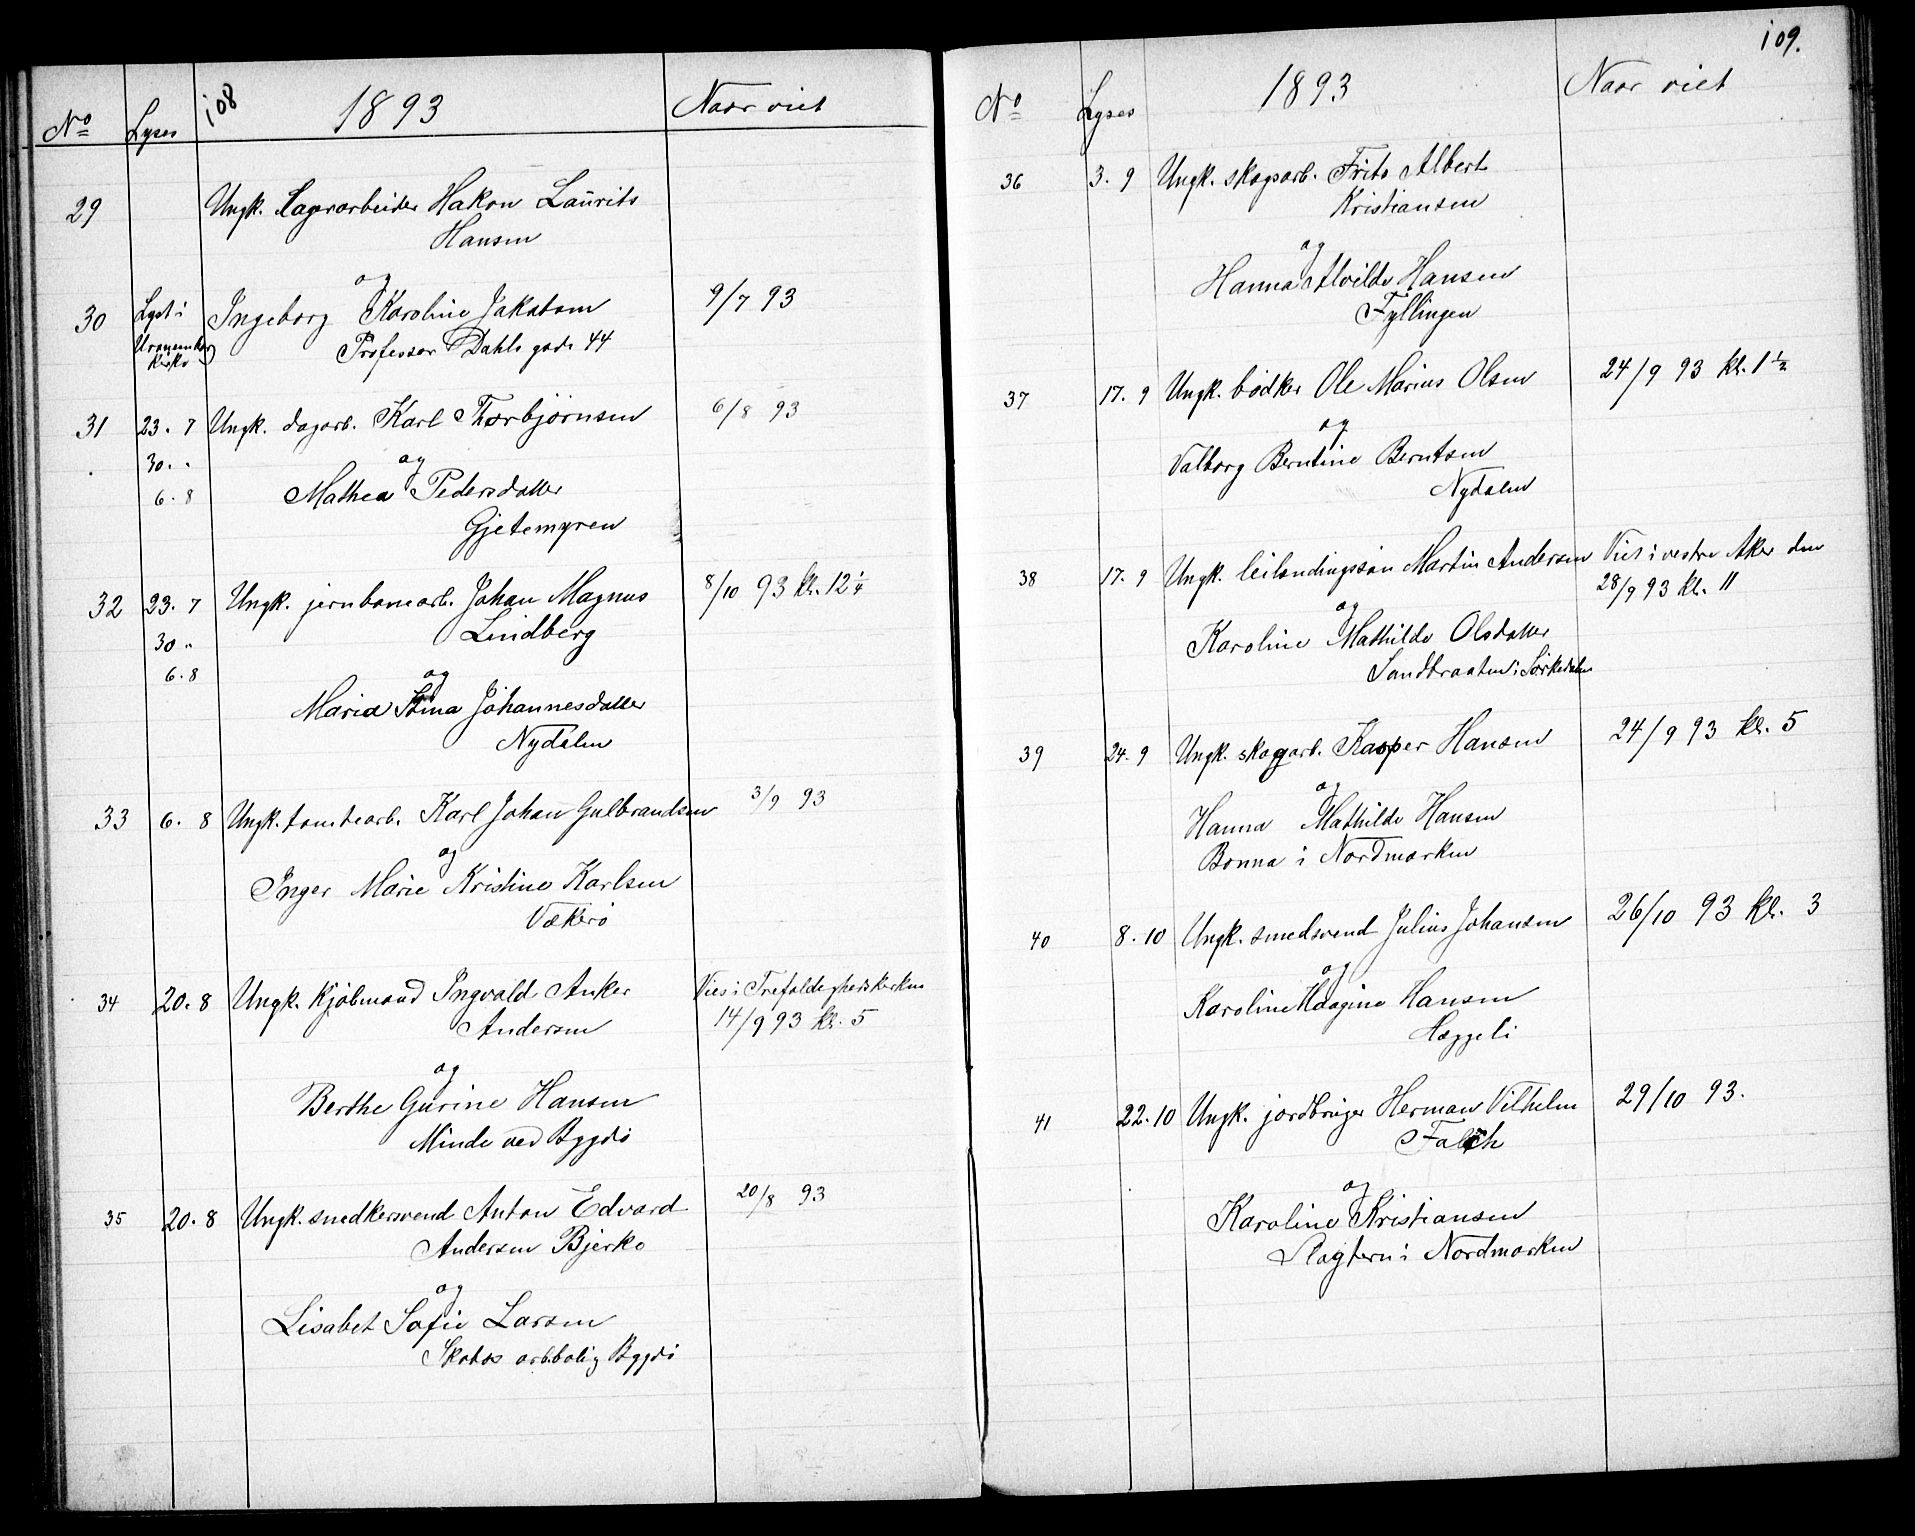 108
1893
Naar viet
No
Lyses
29
Ungk. Lagerarbeider Hakon Laurits
Hansen
og
30
Lyst i
Uranienborg
kirke
Ingeborg Karoline Jakobsen
Professor Dahls gade 44
9/7 93
31
23. 7
30. "
6. 8
Ungk. dagarb. Karl Thorbjørnsen
og
Mathea Pedersdatter
Gjetemyren
6/8 93
32
23. 7
30 "
6. 8
Ungk. jernbanearb. Johan Magnus
Lindberg
og
Maria Stina Johannesdatter
Nydalen
8/10 93 kl. 12 1/4
33
6. 8
Ungk. tomtearb. Karl Johan Gulbrandsen
og
Inger Marie Kristine Karlsen
Vækerö
3/9 93
34
20. 8
Ungk. Kjöbmand Ingvald Anker
Andersen
og
Berthe Gurine Hansen
Minde ved Bygdö
Vies i Trefoldighedskirken
14/9 93 kl. 5
35
20. 8
Ungk. snedkersvend Anton Edvard
Andersen Bjerke
og
Lisabet Sofie Larsen
arb.bolig Bygdö
20/8 93
109.
No
Lyses
1893
Naar viet
36
3. 9
Ungk. skogsarb. Frits Albert
Kristiansen
og
Hanna Alvilde Hansen
Fyllingen
37
17. 9
Ungk. bödker Ole Marius Olsen
og
Valborg Berntine Berntsen
Nydalen
24/9 93 kl. 1 1/2
38
17. 9
Ungk. leilendingssön Martin Andersen
og
Karoline Mathilde Olsdatter
Sandbraaten i Sörkedalen
Viet i vestre Aker den
28/9 93 kl. 11
39
24. 9
Ungk. skogarb. Kasper Hansen
og
Hanna Mathilde Hansen
Bonna i Nordmarken
24/9 93 kl. 5
40
8. 10
Ungk. smedsvend Julius Johansen
og
Karoline Haagine Hansen
Heggeli
26/10 93 kl. 3
41
22. 10
Ungk. jordbruger Herman Vilhelm
Falch
og
Karoline Kristiansen
Slagtern i Nordmarken
29/10 93.